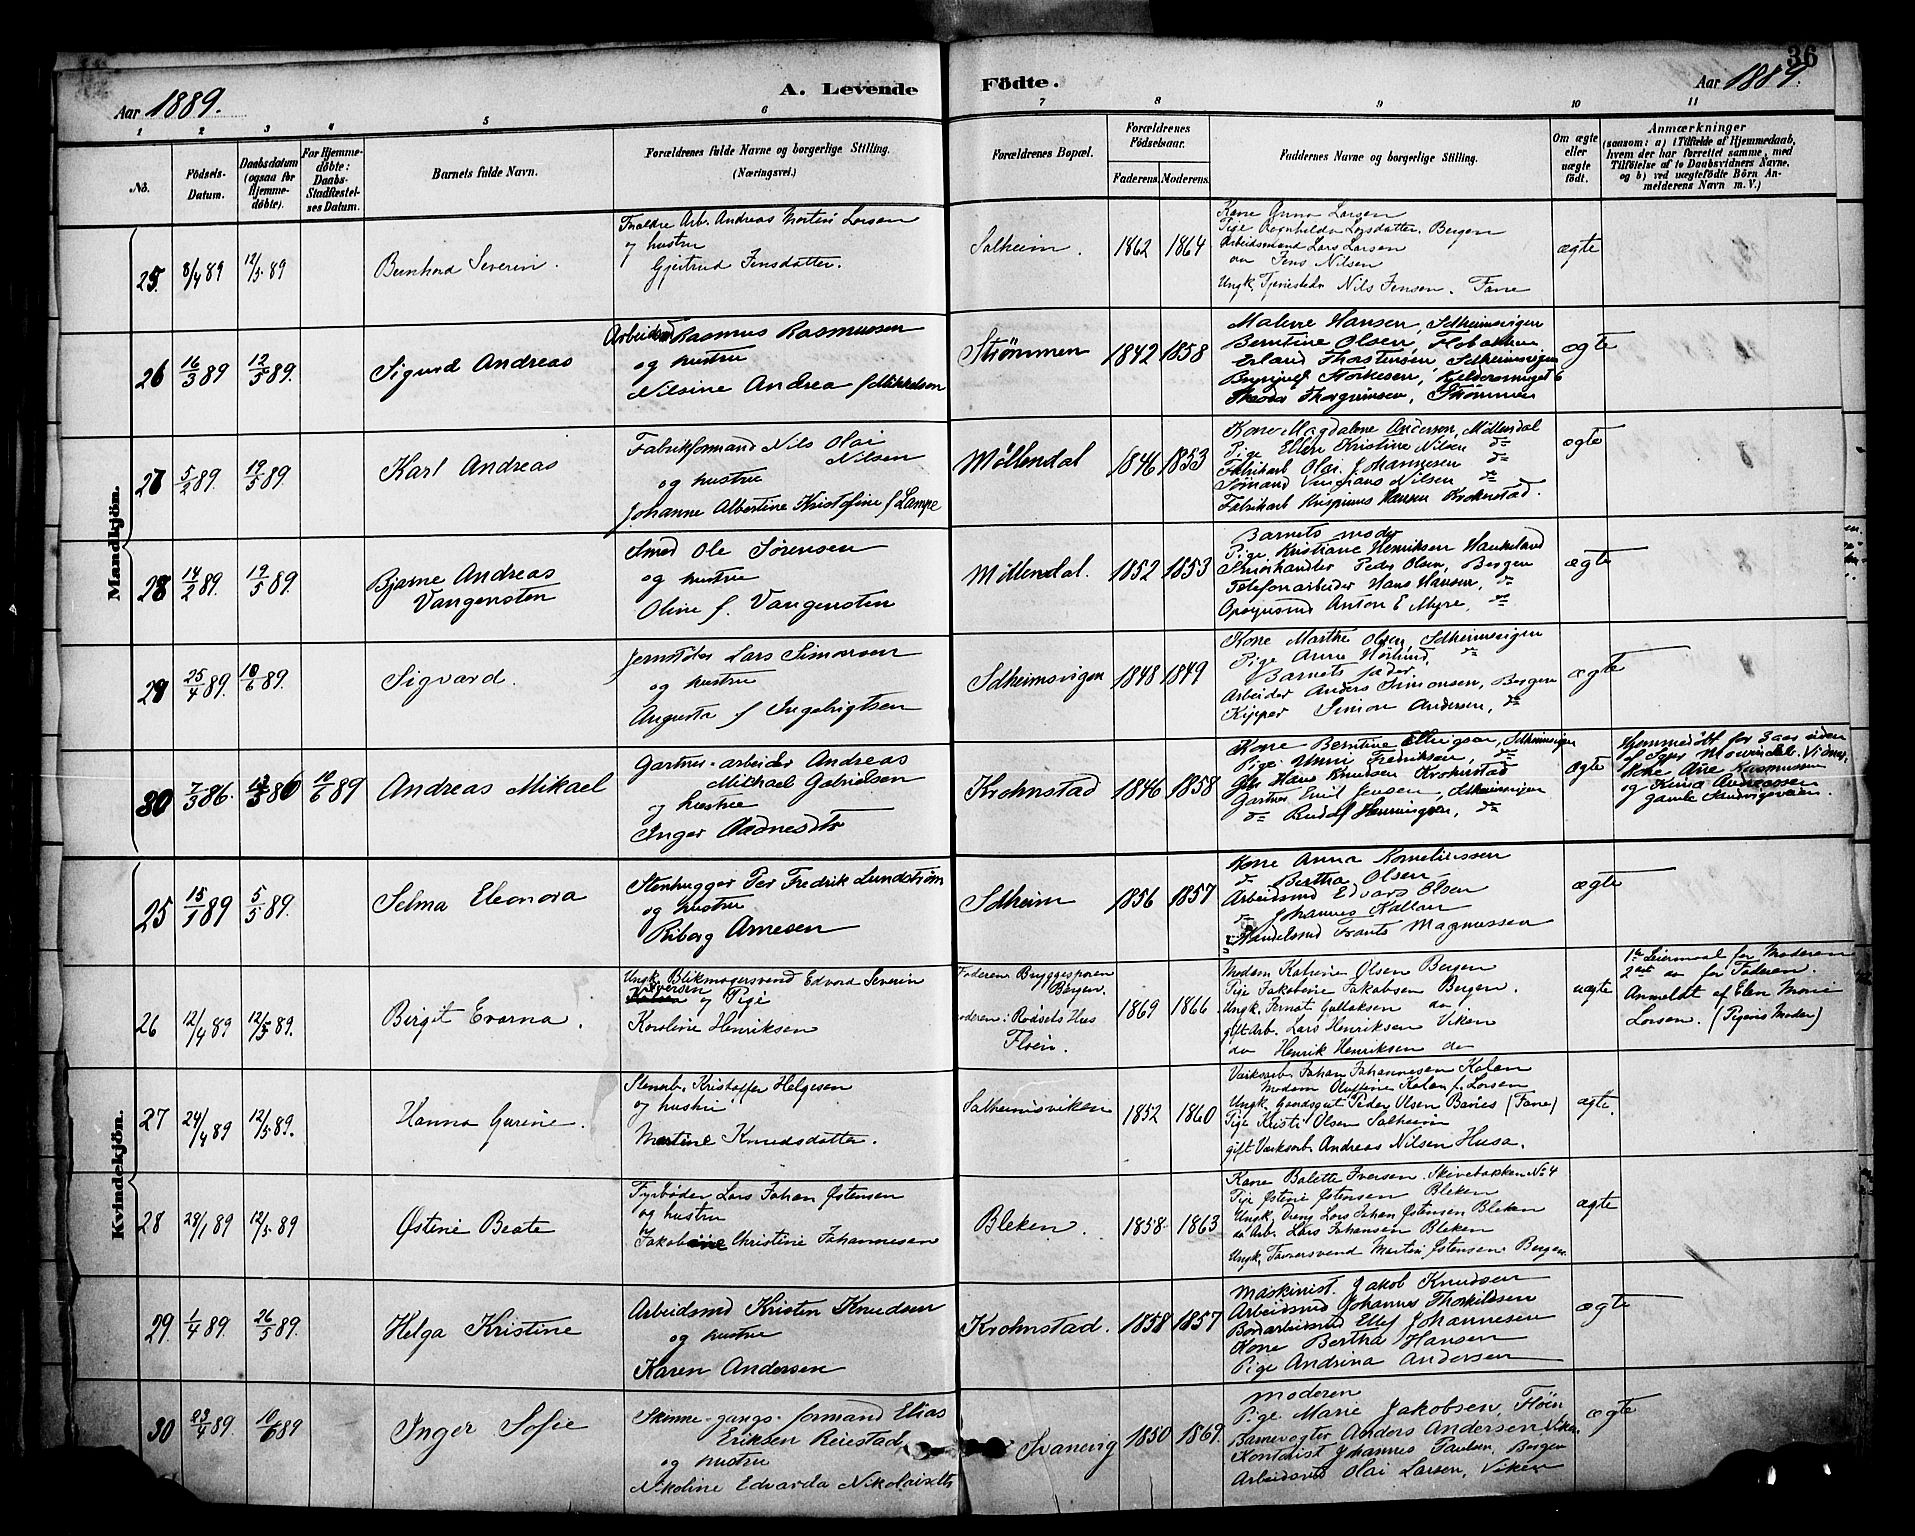 36
Aar 1889.
A. Levende Födte.
Aar 1889.
1 2 3 4 5 6 7 8 9 10 11
No.
Födsels-Datum.
Daabsdatum (ogsaa for Hjemme-döbte).
For Hjemme-döbte: Daabs-Stadfæstel-ses Datum.
Barnets fulde Navn.
Forældrenes fulde Navne og borgerlige Stilling.
(Næringsvei.)
Forældrenes Bopæl.
Forældrenes Födselsaar.
Faderens. Moderens.
Faddernes Navne og borgerlige Stilling.
Om ægte eller uægte födt.
Anmærkninger
(saasom: a) i Tilfælde af Hjemmedaab, hvem der har forrettet samme, med Tilföielse af to Daabsvidners Navne, og b) ved uægtefödte Börn An-melderens Navn m. V.)
Mandkjön.
25. 8/4 89 12/5 89
Bernhard Severin.
Arb. Andreas Martin Larsen
og hustru
Gjertrud Jensdatter.
Solheim. 1862 1864
Kone Anna Larsen
Pige Ragnhilda Larsdatter. Bergen
Arbeidsmand Lars Larsen
do Jens Nilsen
Ungk. Nils Jensen. Fane
ægte
26 16/3 89 12/5 89.
Sigurd Andreas
Arbeidsmd Rasmus Rasmussen
og hustru
Nilsine Andrea f Mikkelsen
Strømmen 1842 1858
Malene Hansen, Solheimsvigen
Berntine Olsen,
Erland Thorstensen, Solheimsvigen
Thorgrimsen, Strømmen
ægte
27 5/2 89. 19/5 89.
Karl Andreas
Fabrikformand Nils Olai
Nilsen
og hustru
Johanne Albertine Kristofine f Lampe
Møllendal 1846 1853
Kone Magdalene Anderson, Møllendal
Pige Ellen Kristine Nilsen do
Fabrikarb Olai Johannesen do
Sømand Nilsen do
Fabrikarb Krispinus Hansen Krohnstad.
ægte
28 14/2 89. 19/5 89.
Bjarne Andreas
Vangensten
Smed Ole Sørensen
og hustru
Oline f. Vangensten
Møllendal. 1852 1853
Barnets moder
Pige Kristiane Henriksen Haukeland
Smørhandler Peder Olsen, Bergen
Telefonarbeider Hans Hansen, do
Anton E Myre, do
ægte
29 25/4 89. 10/6 89.
Sigvard.
Jernstøber Lars Simonsen
og hustru
Augusta f Ingebrigtsen
Solheimsvigen 1848 1849
Kone Marthe Olsen, Solheimsvigen
Pige Anne do
Barnets fader
Arbeider Anders Simonsen, Bergen
Kipper Simon Andersen, do
ægte
30 7/3 86. 10/6 89
Andreas Mikael
Gartner-arbeider Andreas
Mikhael Gabrielsen
og hustru
Inger Aadnesdtr
Krohnstad 1846 1858
Kone Berntine Ellingsen, Solheimsvigen
Pige Unni Fredriksen, do
Hans Knudsen Krohnstad
Gartner Emil Jensen, Solheimsvigen
do Rudolf Henningsen, do
ægte
Hjemmedøbt for 3 aar siden
Kone Ane Rasmussen
og Andreassen
gamle Sandvigsveien.
Kvindekjön.
25 5/5 89.
Selma Eleonora
Stenhugger Per Fredrik Lundstrøm
og hustru
Riborg Arnesen
Solheim 1856 1857
Kone Anna Kornelinssen
do Bertha Olsen
Arbeidsmd Edvard Olsen
do Johannes
Handelsmd Frants Magnussen
ægte
26 12/4 89 12/5 89.
Birgit Evarna.
Ungk. Blikmagersvend Edvard Severin
Iversen og Pige
Karoline Henriksen
Faderen Bryggesporen
Bergen.
Moderen: Rødsets Hus
Fløen.
1869 1866
Madam Katrine Olsen Bergen
Pige Jakobine Jakobsen Bergen.
Ungk. do
gift Arb. Lars Henriksen Viken
do Henrik Henriksen do
uægte
1ste Leiermaal for Moderen
2det do for Faderen.
Anmeldt af Elen Marie
Larsen. (Pigens Moder)
27 24/4 89 12/5 89.
Hanna Gurine.
Stenarb. Kristoffer Helgesen
og hustru
Martine Knudsdatter.
Solheimsviken 1852 1860
Værksarb. Johan Johannesen Kalen
Madam Oluffine Kalen f. Larsen
Ungk. Peder Olsen (Fane)
Pige Kristi Olsen Solheim
gift Værksarb. Andreas Nilsen Husa.
ægte.
28 12/5 89
Østine Beate
Fyrbøder Lars Johan Østensen
og hustru
Jakobine Christine Johannesen
Bleken. 1858 1863
Kone Bolette Iversen. Skivebakken No 4
Pige Østine Østensen Bleken
Ungk. Dreng Lars Johan Østensen Bleken
do Arb. Lars Johansen Bleken
Ungk. Martin Østensen. Bergen
ægte
29. 1/4 89. 26/5 89.
Helga Kristine
Arbeidsmd Kristen Knudsen
og hustru
Karen Andersen
Krohnstad. 1858 1857
Maskinist. Jakob Knudsen
Arbeidsmd Johannes Thorkildsen
Bordarbeidsmd Ellef Johannesen
Kone Bertha Hansen
Pige Andrina Andersen
ægte
30 23/4 89. 10/6 89
Inger Sofie
formand Elias
Eriksen Reiestad
og hustru
Nikoline Edvarda Nikolaisdtr
Svanevig 1850 1869.
Moderen
Pige Marie Jakobsen, Fløen
Barnevogter Anders Andersen Viken
Kontorist Johannes Paulsen, Bergen
Arbeidsmd Olai Larsen, Viken
ægte